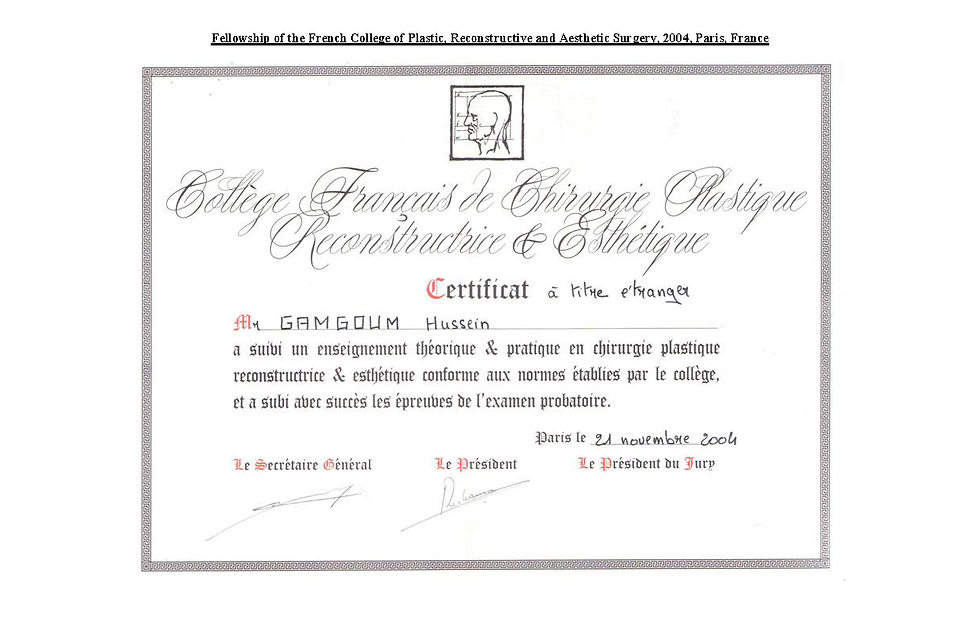 Fellowship of the French College of Plastic, Reconstructive and Aesthetic Surgery, 2004, Paris, France
Collège Français de Chirurgie Plastique
Reconstructrice & Esthétique
Certificat à titre étranger
Mr GAMGOUM Hussein
a suivi un enseignement théorique & pratique en chirurgie plastique
reconstructrice & esthétique conforme aux normes établies par le collège,
et a subi avec succès les épreuves de l'examen probatoire.
Paris le 21 novembre 2004
Le Secrétaire Général Le Président Le Président du Jury